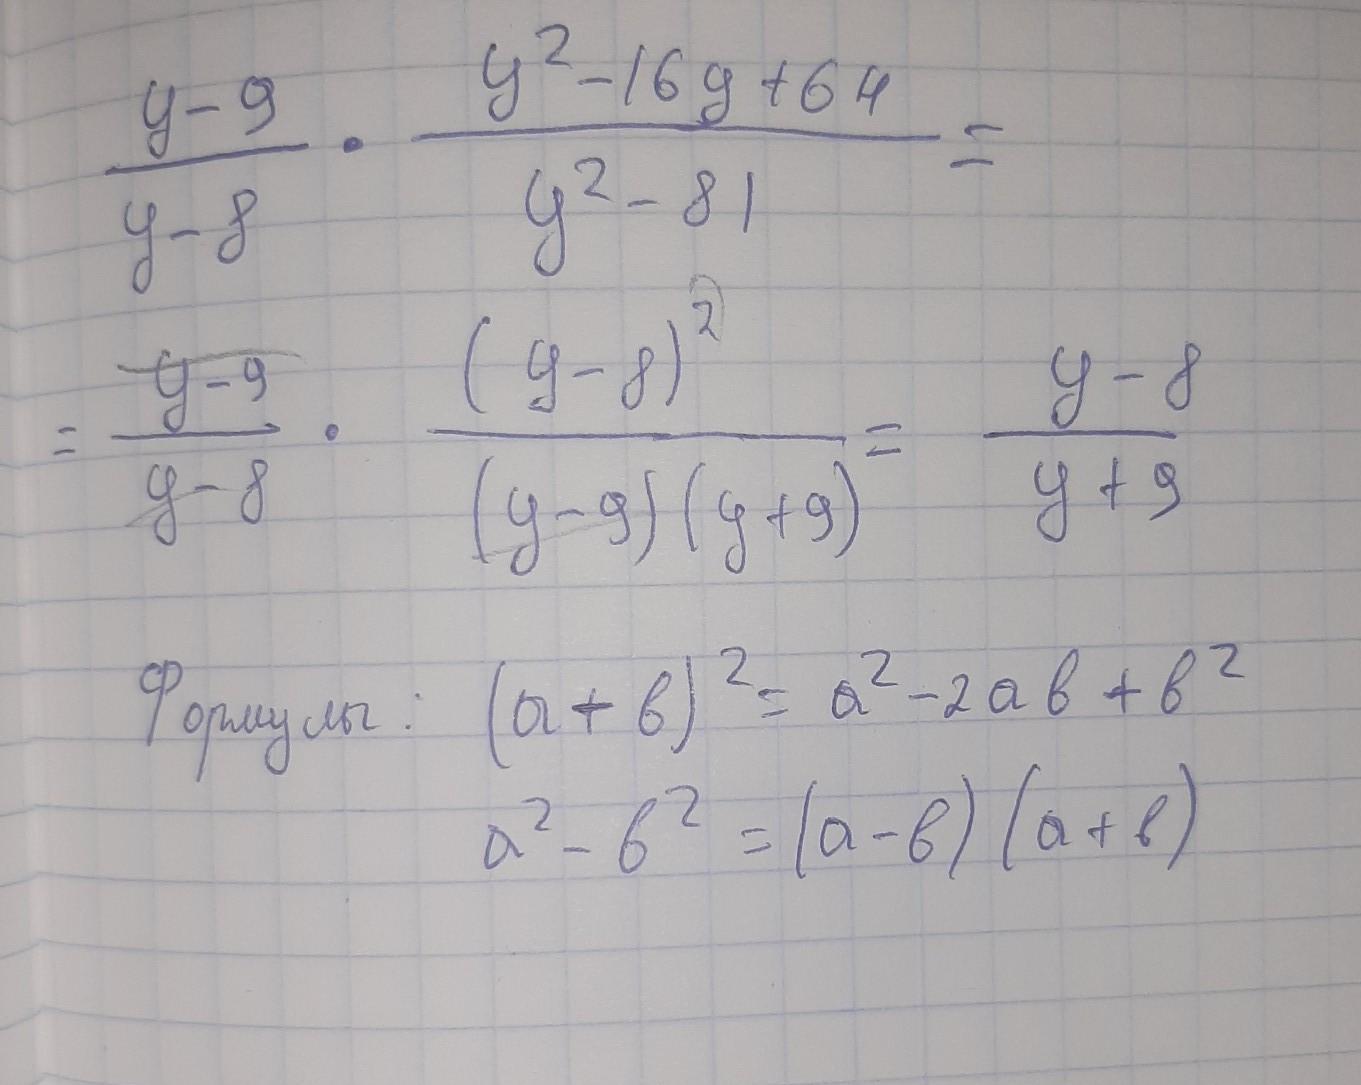 (y-9)/(y-8) · (y²-16y+64)/(y²-81) =
= (y-9)/(y-8) · (y-8)²/((y-9)(y+9)) = (y-8)/(y+9)
Формулы: (a+b)² = a²-2ab+b²
a²-b² = (a-b)(a+b)